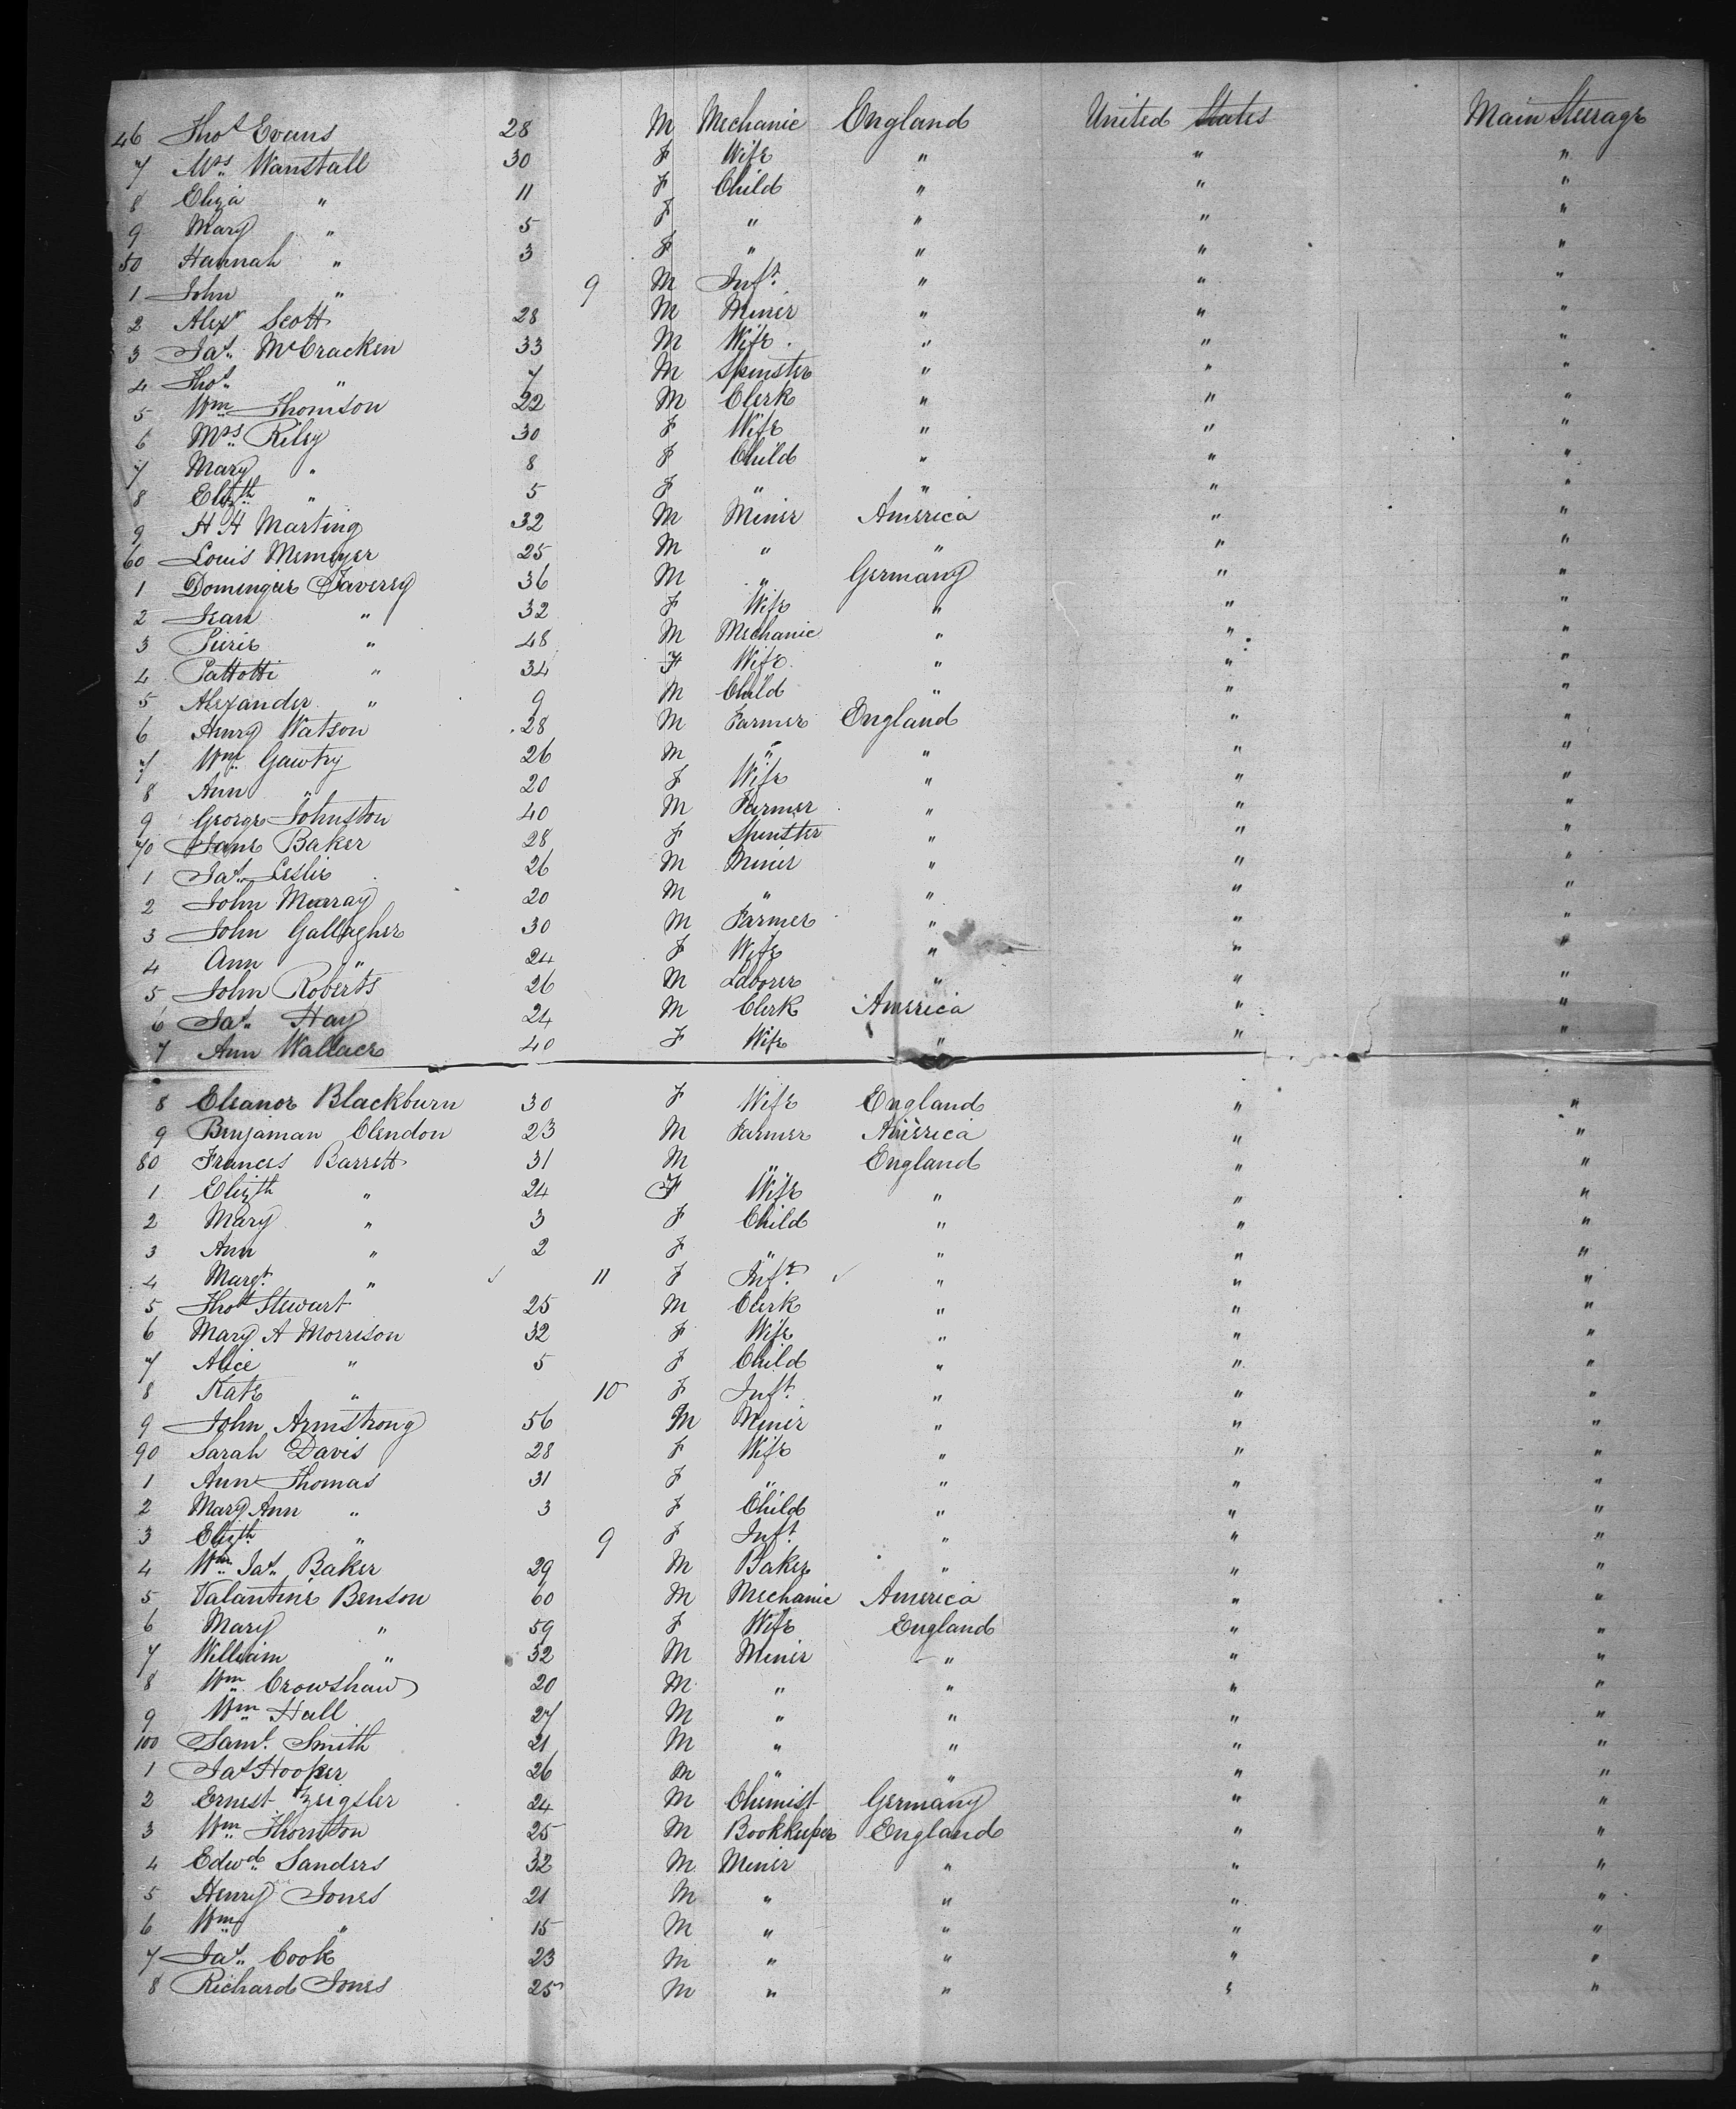 46 Thos Evans 28 M Mechanic England United States Main Steerage
7 Mrs Wanstall 30 F Wife " " "
8 Eliza " 11 F Child " " "
9 Mary " 5 F " " " "
50 Hannah " 3 F " " " "
1 John " 9 M Inft " " "
2 Alexr Scott 28 M Miner " " "
3 Jas McCracken 33 M Wife " " "
4 Thos " 7 M Spinster " " "
5 Wm Thomson 22 M Clerk " " "
6 Mrs Riley 30 F Wife " " "
7 Mary " 8 F Child " " "
8 Elizth " 5 F " " " "
9 H H Marting 32 M Miner America " "
60 Louis Memeyer 25 M " " " "
1 36 M " Germany " "
2 Jean " 32 F Wife " " "
3 Pierie " 48 M Mechanic " " "
4 Pattotti " 34 F Wife " " "
5 Alexander " 9 M Child " " "
6 Henry Watson 28 M Farmer England " "
7 Wm Gawtry 26 M " " " "
8 Ann " 20 F Wife " " "
9 George Johnston 40 M Farmer " " "
70 Jane Baker 28 F Spinster " " "
1 Jas Leslie 26 M Miner " " "
2 John Murray 20 M " " " "
3 John Gallagher 30 M Farmer " " "
4 Ann " 24 F Wife " " "
5 John Roberts 26 M Laborer " " "
6 Jas Hay 24 M Clerk America " "
7 Ann Wallace 40 F Wife " " "
8 Eleanor Blackburn 30 F Wife England " "
9 Benjaman Clendon 23 M Farmer America " "
80 Frances Barrett 31 M " England " "
1 Elizth " 24 F Wife " " "
2 Mary " 3 F Child " " "
3 Ann " 2 F " " " "
4 Margt " 11 F Inft " " "
5 Thos Stewart 25 M Clerk " " "
6 Mary A Morrison 32 F Wife " " "
7 Alice " 5 F Child " " "
8 Kate " 10 F Inft " " "
9 John Armstrong 56 M Miner " " "
90 Sarah Davis 28 F Wife " " "
1 Ann Thomas 31 F " " " "
2 Mary Ann " 3 F Child " " "
3 Elizth " 9 F Inft " " "
4 Wm Jas Baker 29 M Baker " " "
5 Valantine Benson 60 M Mechanic America " "
6 Mary " 59 F Wife England " "
7 William " 32 M Miner " " "
8 Wm Crowshaw 20 M " " " "
9 Wm Hall 27 M " " " "
100 Saml Smith 21 M " " " "
1 Jas Hooper 26 M " " " "
2 Ernest Zeigsler 24 M Chemist Germany " "
3 Wm Thornton 25 M Bookkeeper England " "
4 Edwd Sanders 32 M Miner " " "
5 Henry Jones 21 M " " " "
6 Wm " 15 M " " " "
7 Jas Cook 23 M " " " "
8 Richard Jones 25 M " " " "